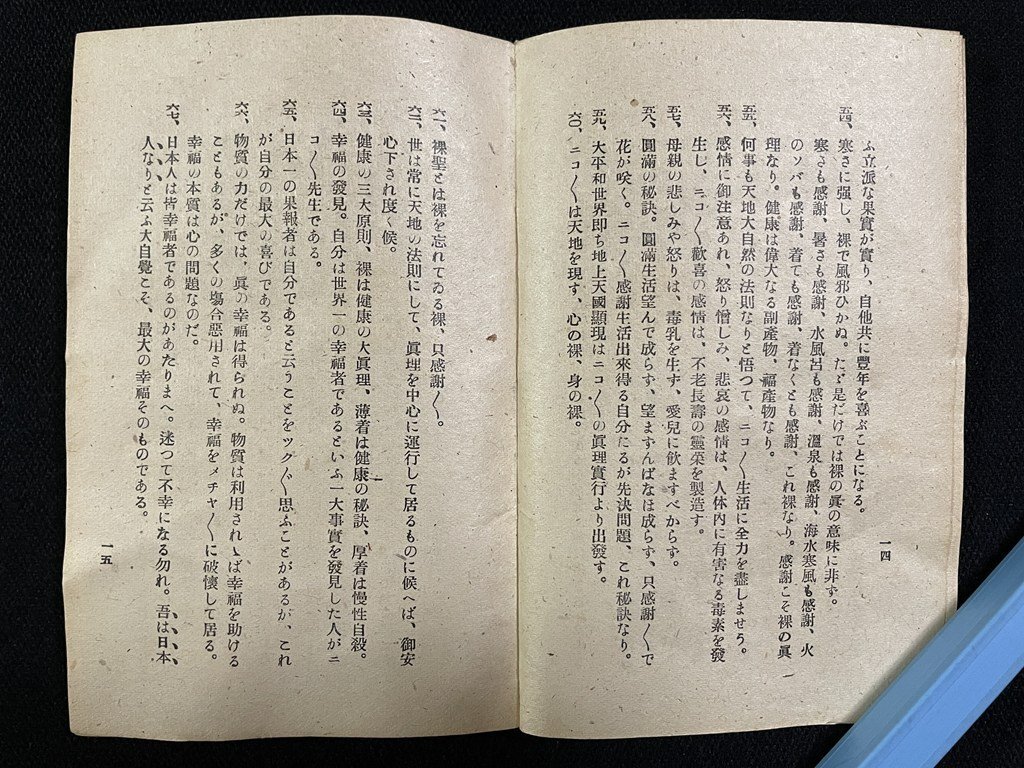 ふ立派な果實が實り、自他共に豐年を喜ぶことになる。
五四、寒さに强し、裸で風邪ひかぬ。たゞ是だけでは裸の眞の意味に非ず。
寒さも感謝、暑さも感謝、水風呂も感謝、溫泉も感謝、海水寒風も感謝、火
のソバも感謝、着ても感謝、着なくとも感謝、これ裸なり。感謝こそ裸の眞
理なり。健康は偉大なる副產物、福產物なり。
五五、何事も天地大自然の法則なりと悟つて、ニコ〳〵生活に全力を盡しませう。
五六、感情に御注意あれ、怒り憎しみ、悲哀の感情は、人体內に有害なる毒素を發
生し、ニコ〳〵歡喜の感情は、不老長壽の靈藥を製造す。
五七、母親の悲しみや怒りは、毒乳を生ず、愛兒に飮ますべからず。
五八、圓滿の秘訣。圓滿生活望んで成らず、望まずんばなほ成らず、只感謝〳〵で
花が咲く。ニコ〳〵感謝生活出來得る自分になるが先決問題、これ秘訣なり。
五九、大平和世界卽ち地上天國顯現はニコ〳〵の眞理實行より出發す。
六〇、ニコ〳〵は天地を現す、心の裸、身の裸。
一四
六一、裸聖とは裸を忘れてゐる裸、只感謝〳〵。
六二、世は常に天地の法則にして、眞理を中心に運行して居るものに候へば、御安
心下され度く候。
六三、健康の三大原則、裸は健康の大眞理、薄着は健康の秘訣、厚着は慢性自殺。
六四、幸福の發見。自分は世界一の幸福者であるといふ一大事實を發見した人がニ
コ〳〵先生である。
六五、日本一の果報者は自分であると云うことをツク〴〵思ふことがあるが、これ
が自分の最大の喜びである。
六六、物質の力だけでは、眞の幸福は得られぬ。物質は利用されゝば幸福を助ける
こともあるが、多くの塲合惡用されて、幸福をメチャ〳〵に破懷して居る。
幸福の本質は心の問題なのだ。
六七、日本人は皆幸福者であるのがあたりまへ。迷つて不幸になる勿れ。吾は日本
人なりと云ふ大自覺こそ、最大の幸福そのものである。
一五